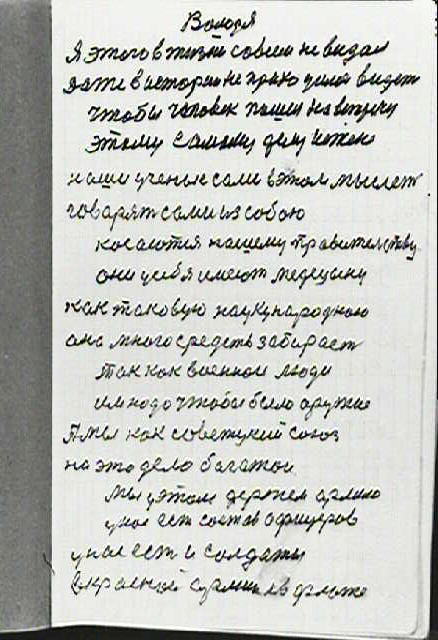 Володя
Я этого в жизни совсем не видал
даже в истории не прихо видеть
чтобы человек пошел на встречу
этому самому делу
наши ученые сами в этом мыслет
говарят сами из собою
косаются нашему правительству
они усебя имеют медецыну
как таковую науку народною
она много средств забирает
так как военнои люди
им надо чтобы было аружие
А мы как советцкий союз
на это дело багатои
мы уэтом держем армию
унас ест состав офицеров
унас ест и солдаты
вкрасной армии во флоте